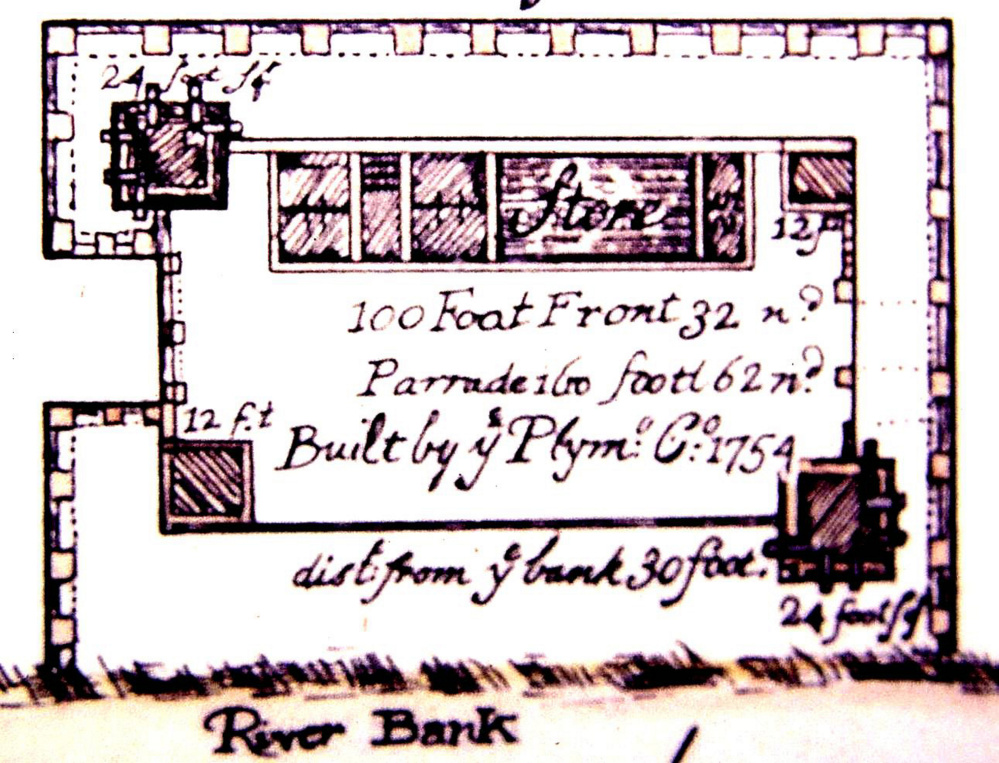 24 foot sq
Store
12 f
100 Foot Front 32 n?
Parrade 160 foott 62 n?
12 f.t
Built by yͤ Plymº: Cº: 1754
dist: from yͤ bank 30 foot.
24 foot sq
River Bank